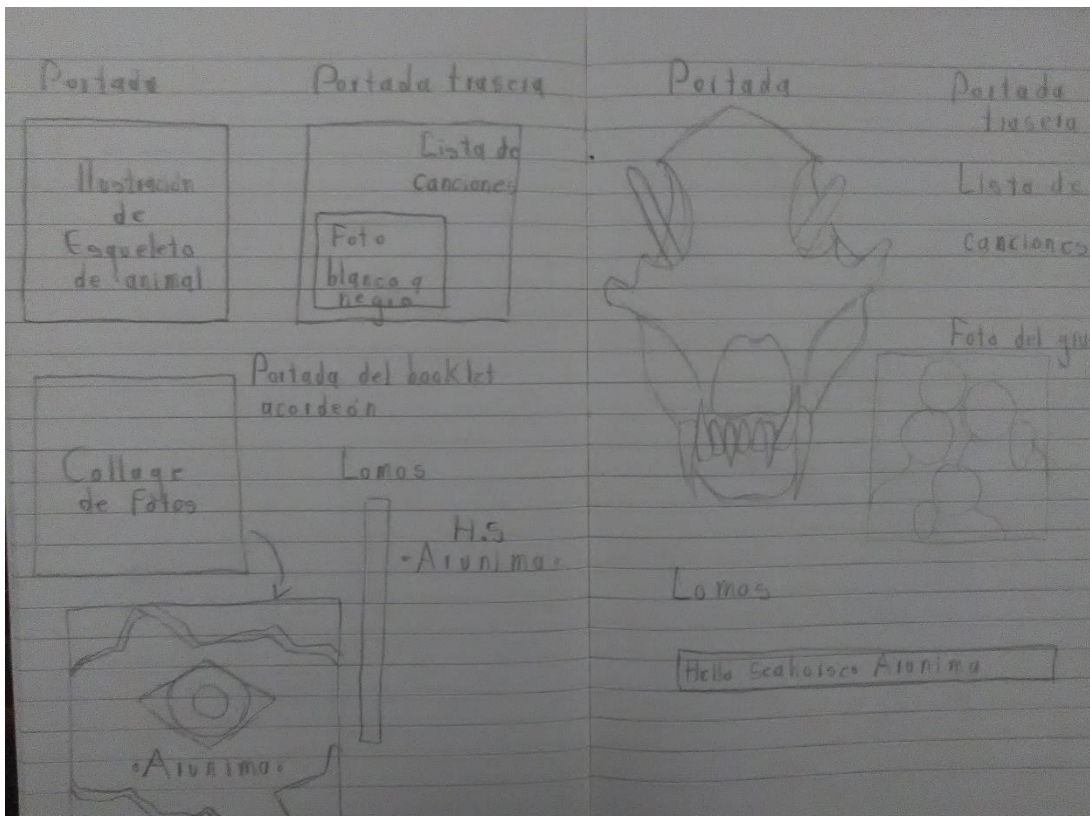 Portada
Ilustración
de
Esqueleto
de animal
Portada trasera
Lista de
canciones
Foto
blanco y
negro
Portada del booklet
acordeón
Collage
de Fotos
Lomos
H.S
·Arunima·
·Arunima·
Portada
Portada
trasera
Lista de
canciones
Foto del gru
Lomos
Hello Seahorse Arunima